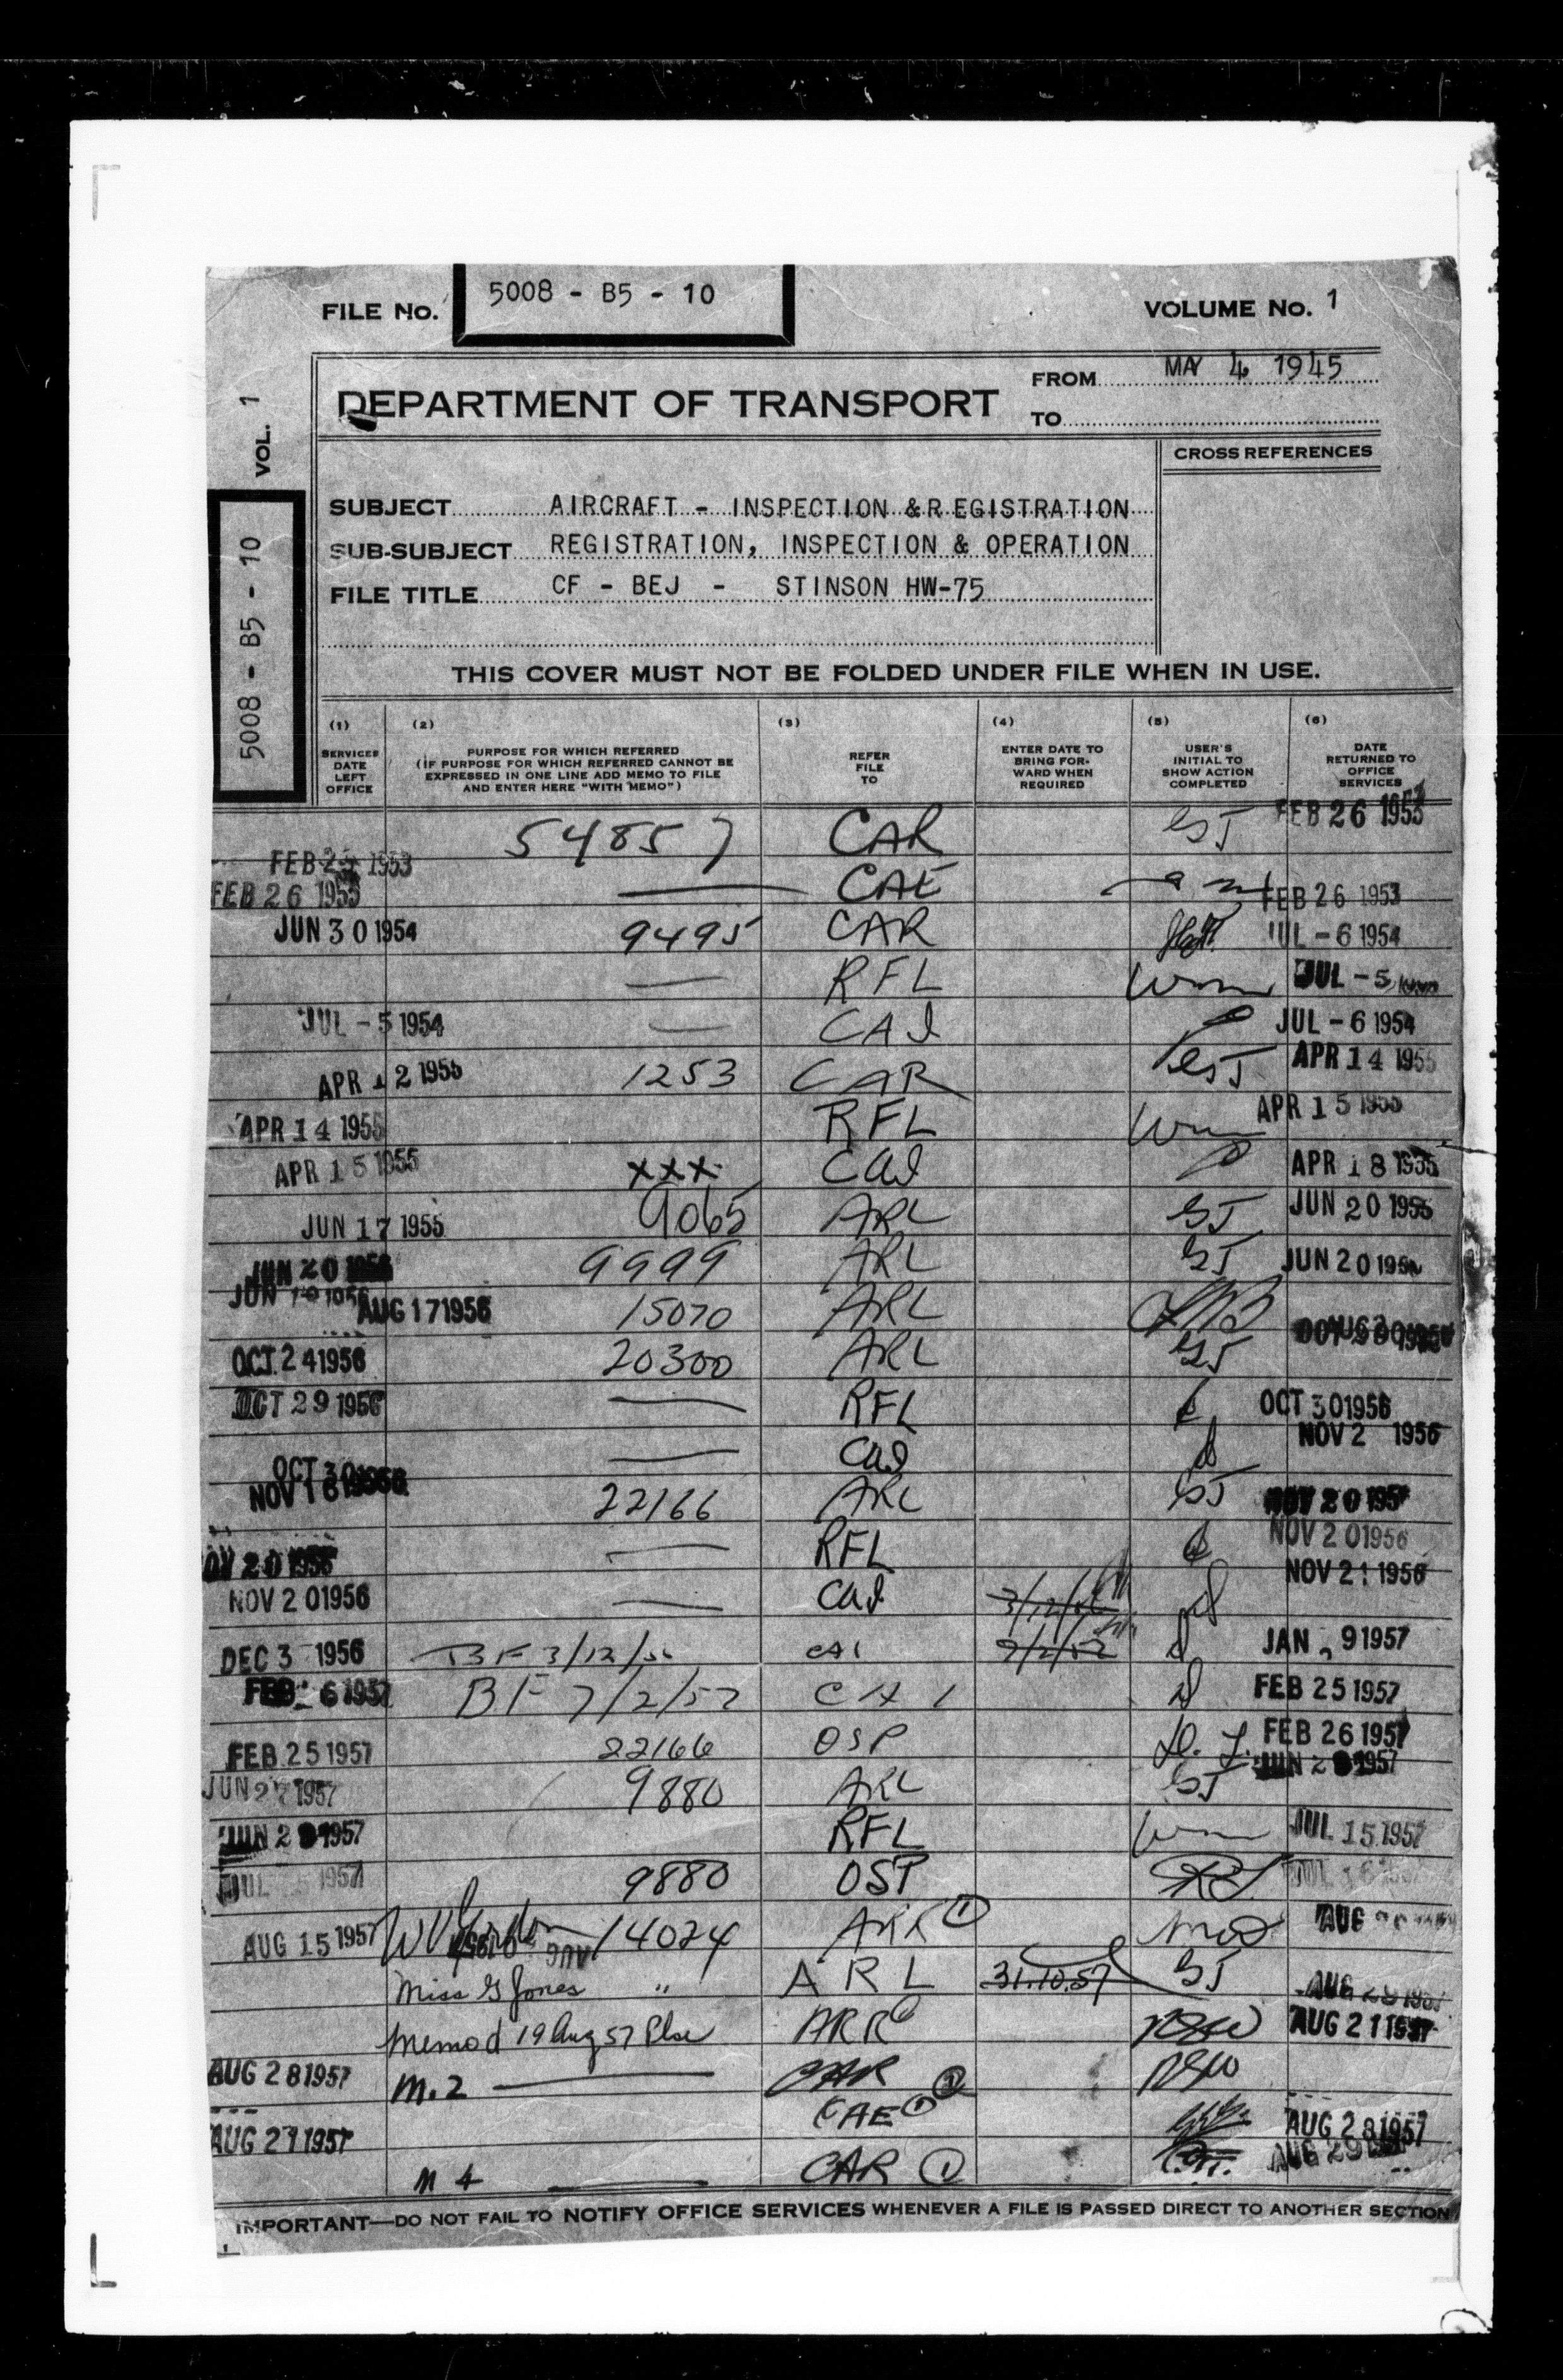 FILE No. 5008 - B5 - 10
VOLUME No. 1
VOL. 1
5008 - B5 - 10
DEPARTMENT OF TRANSPORT
FROM MAY 4 1945
TO
CROSS REFERENCES
SUBJECT AIRCRAFT - INSPECTION & REGISTRATION
SUB-SUBJECT REGISTRATION, INSPECTION & OPERATION
FILE TITLE CF - BEJ - STINSON HW-75
THIS COVER MUST NOT BE FOLDED UNDER FILE WHEN IN USE.
(1) SERVICES DATE LEFT OFFICE
(2) PURPOSE FOR WHICH REFERRED (IF PURPOSE FOR WHICH REFERRED CANNOT BE EXPRESSED IN ONE LINE ADD MEMO TO FILE AND ENTER HERE "WITH MEMO")
(3) REFER FILE TO
(4) ENTER DATE TO BRING FOR-WARD WHEN REQUIRED
(5) USER'S INITIAL TO SHOW ACTION COMPLETED
(6) DATE RETURNED TO OFFICE SERVICES
FEB 25 1953 54857 CAR GJ FEB 26 1953
FEB 26 1953 — CAE FEB 26 1953
JUN 30 1954 9495 CAR JUL - 6 1954
— RFL JUL - 5
JUL - 5 1954 — CAI JUL - 6 1954
APR 12 1955 1253 CAR GJ APR 14 1955
APR 14 1955 RFL APR 15 1955
APR 15 1955 XXX CAI APR 18 1955
JUN 17 1955 9065 ARL GJ JUN 20 1955
JUN 20 1956 9999 ARL GJ JUN 20 1956
JUN 19 1956 AUG 17 1956 15070 ARL
OCT 24 1956 20300 ARL GJ
OCT 29 1956 — RFL OCT 30 1956
OCT 30 1956 — CAI NOV 2 1956
NOV 16 1956 22166 ARL GJ NOV 20 195
NOV 20 1956 — RFL NOV 20 1956
NOV 20 1956 — CAI 3/12/56 NOV 21 1956
DEC 3 1956 BF 3/12/56 CAI 7/2/57 JAN 9 1957
FEB 6 1957 BF 7/2/57 CAI FEB 25 1957
FEB 25 1957 22166 OSP FEB 26 1957
JUN 27 1957 9880 ARL GJ JUN 28 1957
JUN 28 1957 RFL JUL 15 1957
JUL 15 1957 9880 OSP JUL 16
AUG 15 1957 14024 ARR (1) AUG
Miss G Jones " ARL 31.10.57 GJ AUG 28 1957
Memo d 19 Aug 57 Plse ARR AUG 21 1957
AUG 28 1957 M.2 — CAR (1)
AUG 27 1957 CAE (1) AUG 28 1957
M 4 — CAR (1) AUG 29
IMPORTANT—DO NOT FAIL TO NOTIFY OFFICE SERVICES WHENEVER A FILE IS PASSED DIRECT TO ANOTHER SECTION